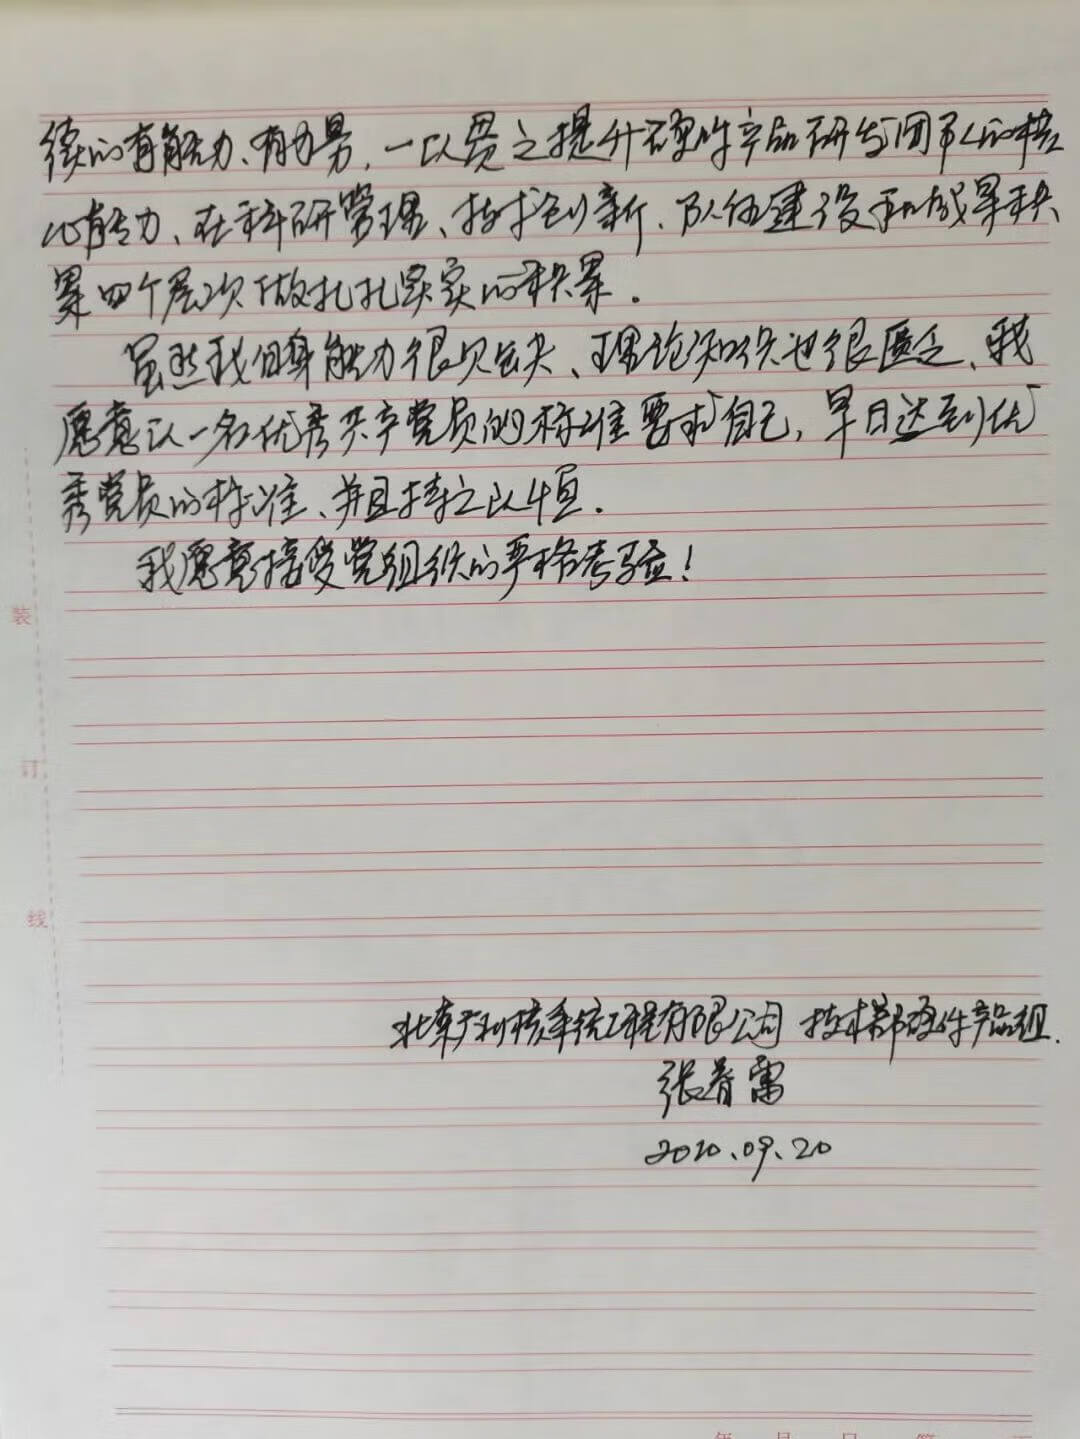 续的有能力、有力男，一以贯之提升硬件产品研发团队的核
心能力、在科研管理、技术创新、队伍建设和成果积
累四个层次做扎扎实实的积累。
虽然我自身能力很欠缺、理论知识也很匮乏、我
愿意以一名优秀共产党员的标准要求自己，早日达到优
秀党员的标准、并且持之以恒。
我愿意接受党组织的严格考验！
装
订
线
北京广利核系统工程有限公司 技术部硬件产品组
张春雷
2020.09.20
年 月 日 第 页